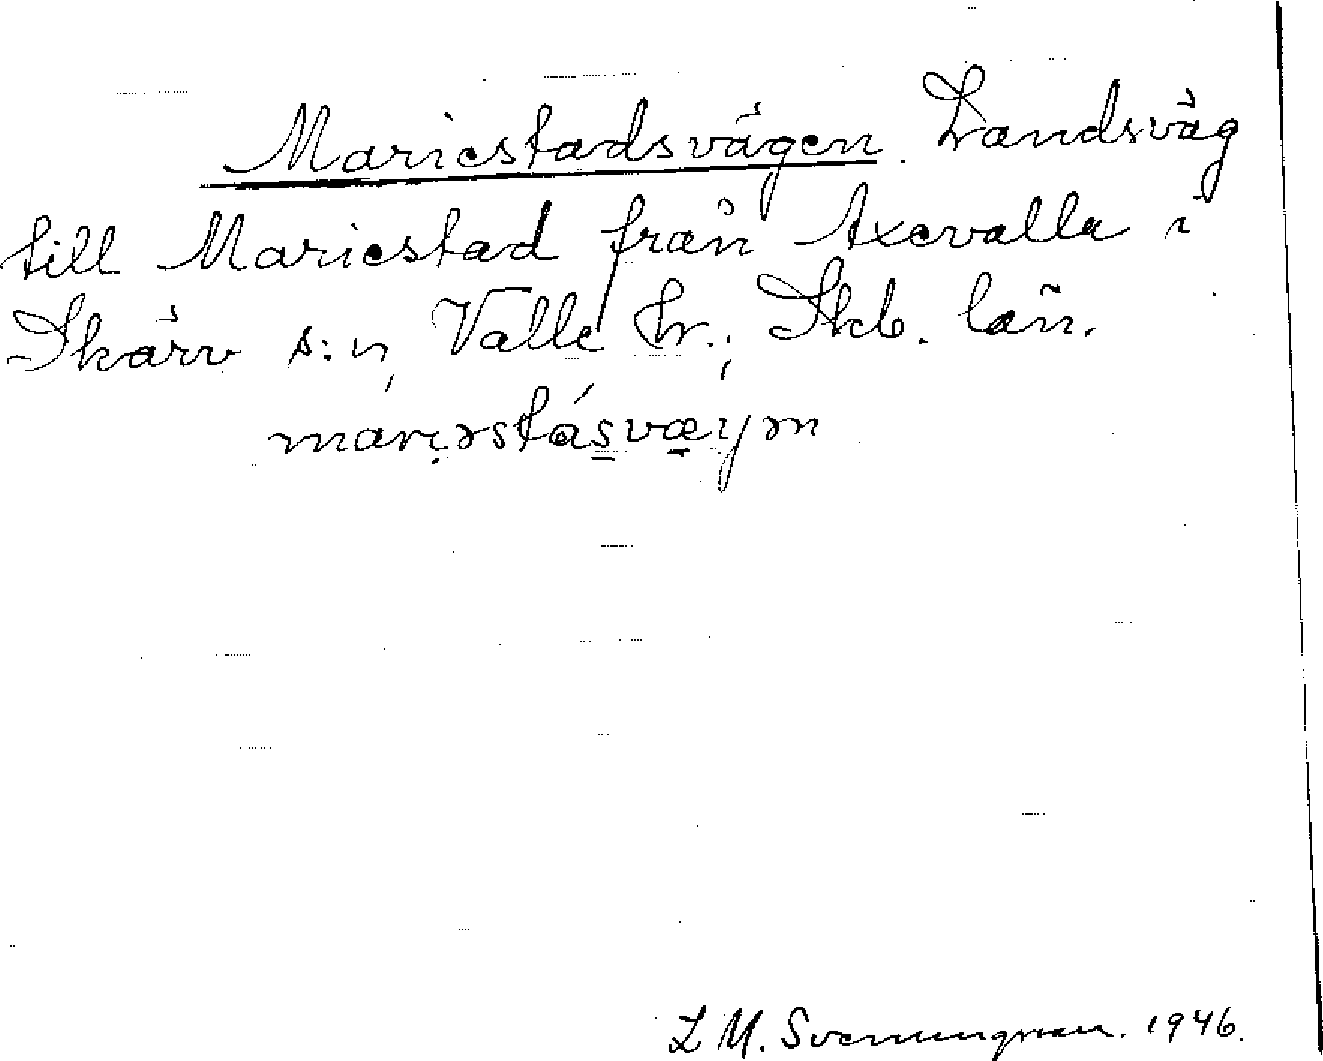 Mariestadsvägen. Landsväg
till Mariestad från Axevalla i
Skärv s:n, Valle hr., Skb. län.
marıəstásvæɣən
L M. Svenungsson. 1946.